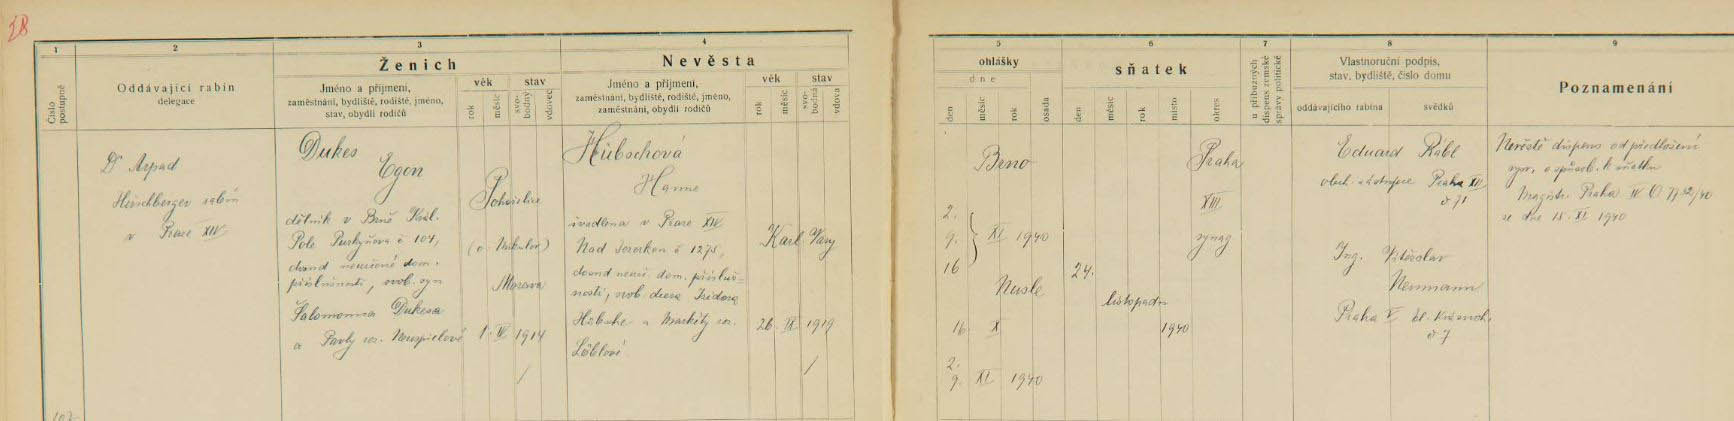 28
1
2
3
4
Číslo postupné
Oddávající rabín
delegace
Ženich
Jméno a příjmení,
zaměstnání, bydliště, rodiště, jméno,
stav, obydlí rodičů
věk
stav
rok
měsíc
svobodný
vdovec
Nevěsta
Jméno a příjmení,
zaměstnání, bydliště, rodiště, jméno,
zaměstnání, obydlí rodičů
věk
stav
rok
měsíc
svobodná
vdova
Dr Arpad
Hirschberger rabín
v Praze XIV
Dukes
Egon
dělník v Brně Král.
Pole Purkyňova č 104,
dosud neurčené dom.
příslušnosti, svob. syn
Šalomouna Dukesa
a Pavly roz.
Pohořelice
(o Mikulov)
Morava
1. IV 1914
/
Hübschová
Hanne
uvedena v Praze XIV
Nad č 1275,
dosud neurč. dom. přísluš-
nosti, svob. dcera Isidora
Hübsche a Markéty roz.
Löblové.
Karl. Vary
26. IX 1919
/
107
5
6
7
8
9
ohlášky
dne
den
měsíc
rok
osada
sňatek
den
měsíc
rok
místo
okres
u příbuzných
dispens zemské
správy politické
Vlastnoruční podpis,
stav, bydliště, číslo domu
oddávajícího rabína
svědků
Poznamenání
Brno
2.
9. } XI 1940
16
Nusle
16 X
2.
9. XI 1940
24.
listopadu
1940
Praha
XIII
synag
Eduard Räbl
Praha XII
č 71
Ing. Vítězslav
Neumann
Praha V
č 7
Nevěstě dispens od předložení
vysv. o způsob. k sňatku
Magistr. Praha
ze dne 15. XI 1940